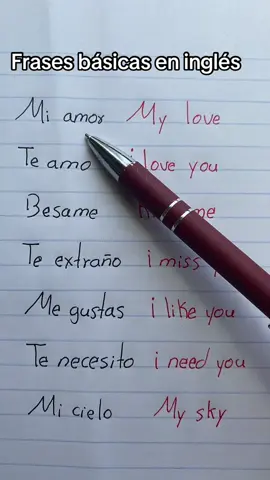 Frases básicas en inglés
Mi amor My love
Te amo i love you
Besame me
Te extraño i miss
Me gustas i like you
Te necesito i need you
Mi cielo My sky